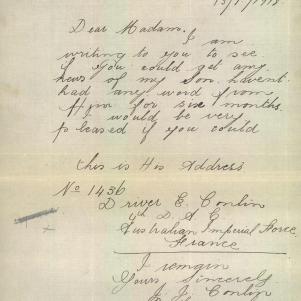 Dear Madam.
I am
writing to you to see
if you could get any
news of my Son. havent
had any word from
Him for six months.
I would be very
pleased if you could
this is His Address
No 1436
Driver E. Conlin
4th D. A. C.
Australian Imperial Force
France
I remain
Yours Sincerely
Conlin